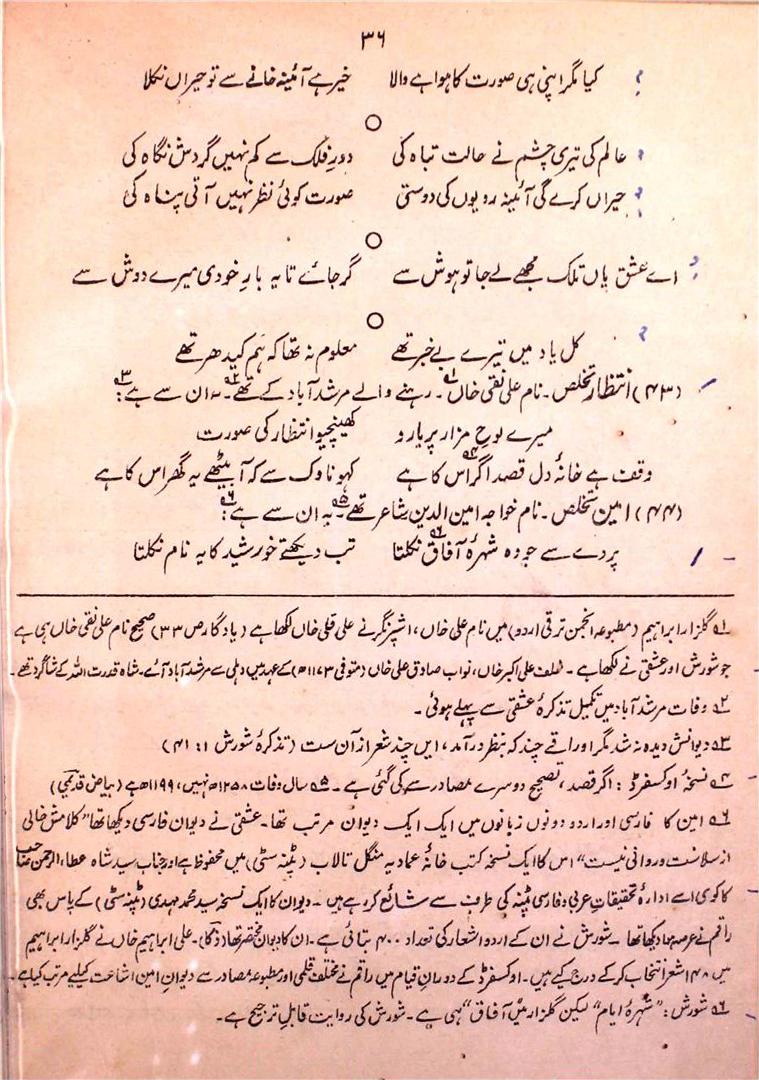 ۳۶
کیا مگر اپنی ہی صورت کا ہوا ہے والا    خیر ہے آئینہ خانے سے تو حیراں نکلا
عالم کی تیری چشم نے حالت تباہ کی    دورِ فلک سے کم نہیں گردش نگاہ کی
حیراں کرے گی آئینہ رویوں کی دوستی    صورت کوئی نظر نہیں آتی پناہ کی
اے عشق یاں تلک مجھے لے جا تو ہوش سے    گر جائے تا یہ بارِ خودی میرے دوش سے
کل یاد میں تیرے بے خبر تھے    معلوم نہ تھا کہ ہم کیدھر تھے
(۴۳) انتظار تخلص ۔ نام علی نقی خاں ۱؎ ۔ رہنے والے مرشد آباد کے تھے ۲؎ ۔ ان سے ہے ۳؎ :
میرے لوحِ مزار پر یارو    کھینچیو انتظار کی صورت
وقف ہے خانۂ دل قصد اگر ۴؎ اس کا ہے    کہو ناوک سے کہ آ بیٹھے یہ گھر اس کا ہے
(۴۴) امین تخلص ۔ نام خواجہ امین الدین شاعر تھے ۵؎ ۔ یہ ان سے ہے ۶؎ :
پردے سے جو وہ شہرۂ آفاق ۶؎ نکلتا    تب دیکھتے خورشید کا یہ نام نکلتا
۱؎ گلزار ابراہیم (مطبوعہ انجمن ترقی اردو) میں نام علی خاں، اشپرنگر نے علی قلی خاں لکھا ہے (یادگار ص ۳۳) صحیح نام علی نقی خاں ہی ہے
جو شورش اور عشقی نے لکھا ہے ۔ خلف علی اکبر خاں، نواب صادق علی خاں (متوفی ۱۱۷۳ھ) کے عہد میں دہلی سے مرشد آباد آئے۔ شاہ قدرت اللہ کے شاگرد تھے۔
۲؎ وفات مرشد آباد میں تکمیل تذکرۂ عشقی سے پہلے ہوئی ۔
۳؎ دیوانش دیدہ نہ شد مگر اوراقے چند کہ بنظر در آمد، ایں چند شعر از آن ست (تذکرۂ شورش ۱: ۴۱)
۴؎ نسخۂ اوکسفرڈ : اگر قصد، تصحیح دوسرے مصادر سے کی گئی ہے ۔ ۵؎ سال وفات ۱۲۵۸ھ نہیں، ۱۱۹۹ھ ہے (بیاض قدیمی)
۶؎ امین کا فارسی اور اردو دونوں زبانوں میں ایک ایک دیوان مرتب تھا۔ عشقی نے دیوان فارسی دیکھا تھا "کلامش خالی
از سلاست و روانی نیست" اس کا ایک نسخہ کتب خانۂ عمادیہ منگل تالاب (پٹنہ سٹی) میں محفوظ ہے اور جناب سید شاہ عطاء الرحمن صاحب
کاکوی اسے ادارۂ تحقیقات عربی و فارسی پٹنہ کی طرف سے شائع کر رہے ہیں ۔ دیوان کا ایک نسخہ سید محمد مہدی (پٹنہ سٹی) کے پاس بھی
راقم نے عرصہ ہوا دیکھا تھا ۔ شورش نے ان کے اردو اشعار کی تعداد ۴۰۰ بتائی ہے ۔ ان کا دیوان مختصر تھا (ذکا) ۔ علی ابراہیم خاں نے گلزار ابراہیم
میں ۱۴۸ شعر انتخاب کر کے درج کیے ہیں ۔ اوکسفرڈ کے دوران قیام میں راقم نے مختلف قلمی اور مطبوعہ مصادر سے دیوانِ امین اشاعت کیلیے مرتب کیا ہے ۔
۶؎ شورش : "شہرۂ ایام" لیکن گلزار میں "آفاق" ہی ہے ۔ شورش کی روایت قابلِ ترجیح ہے ۔